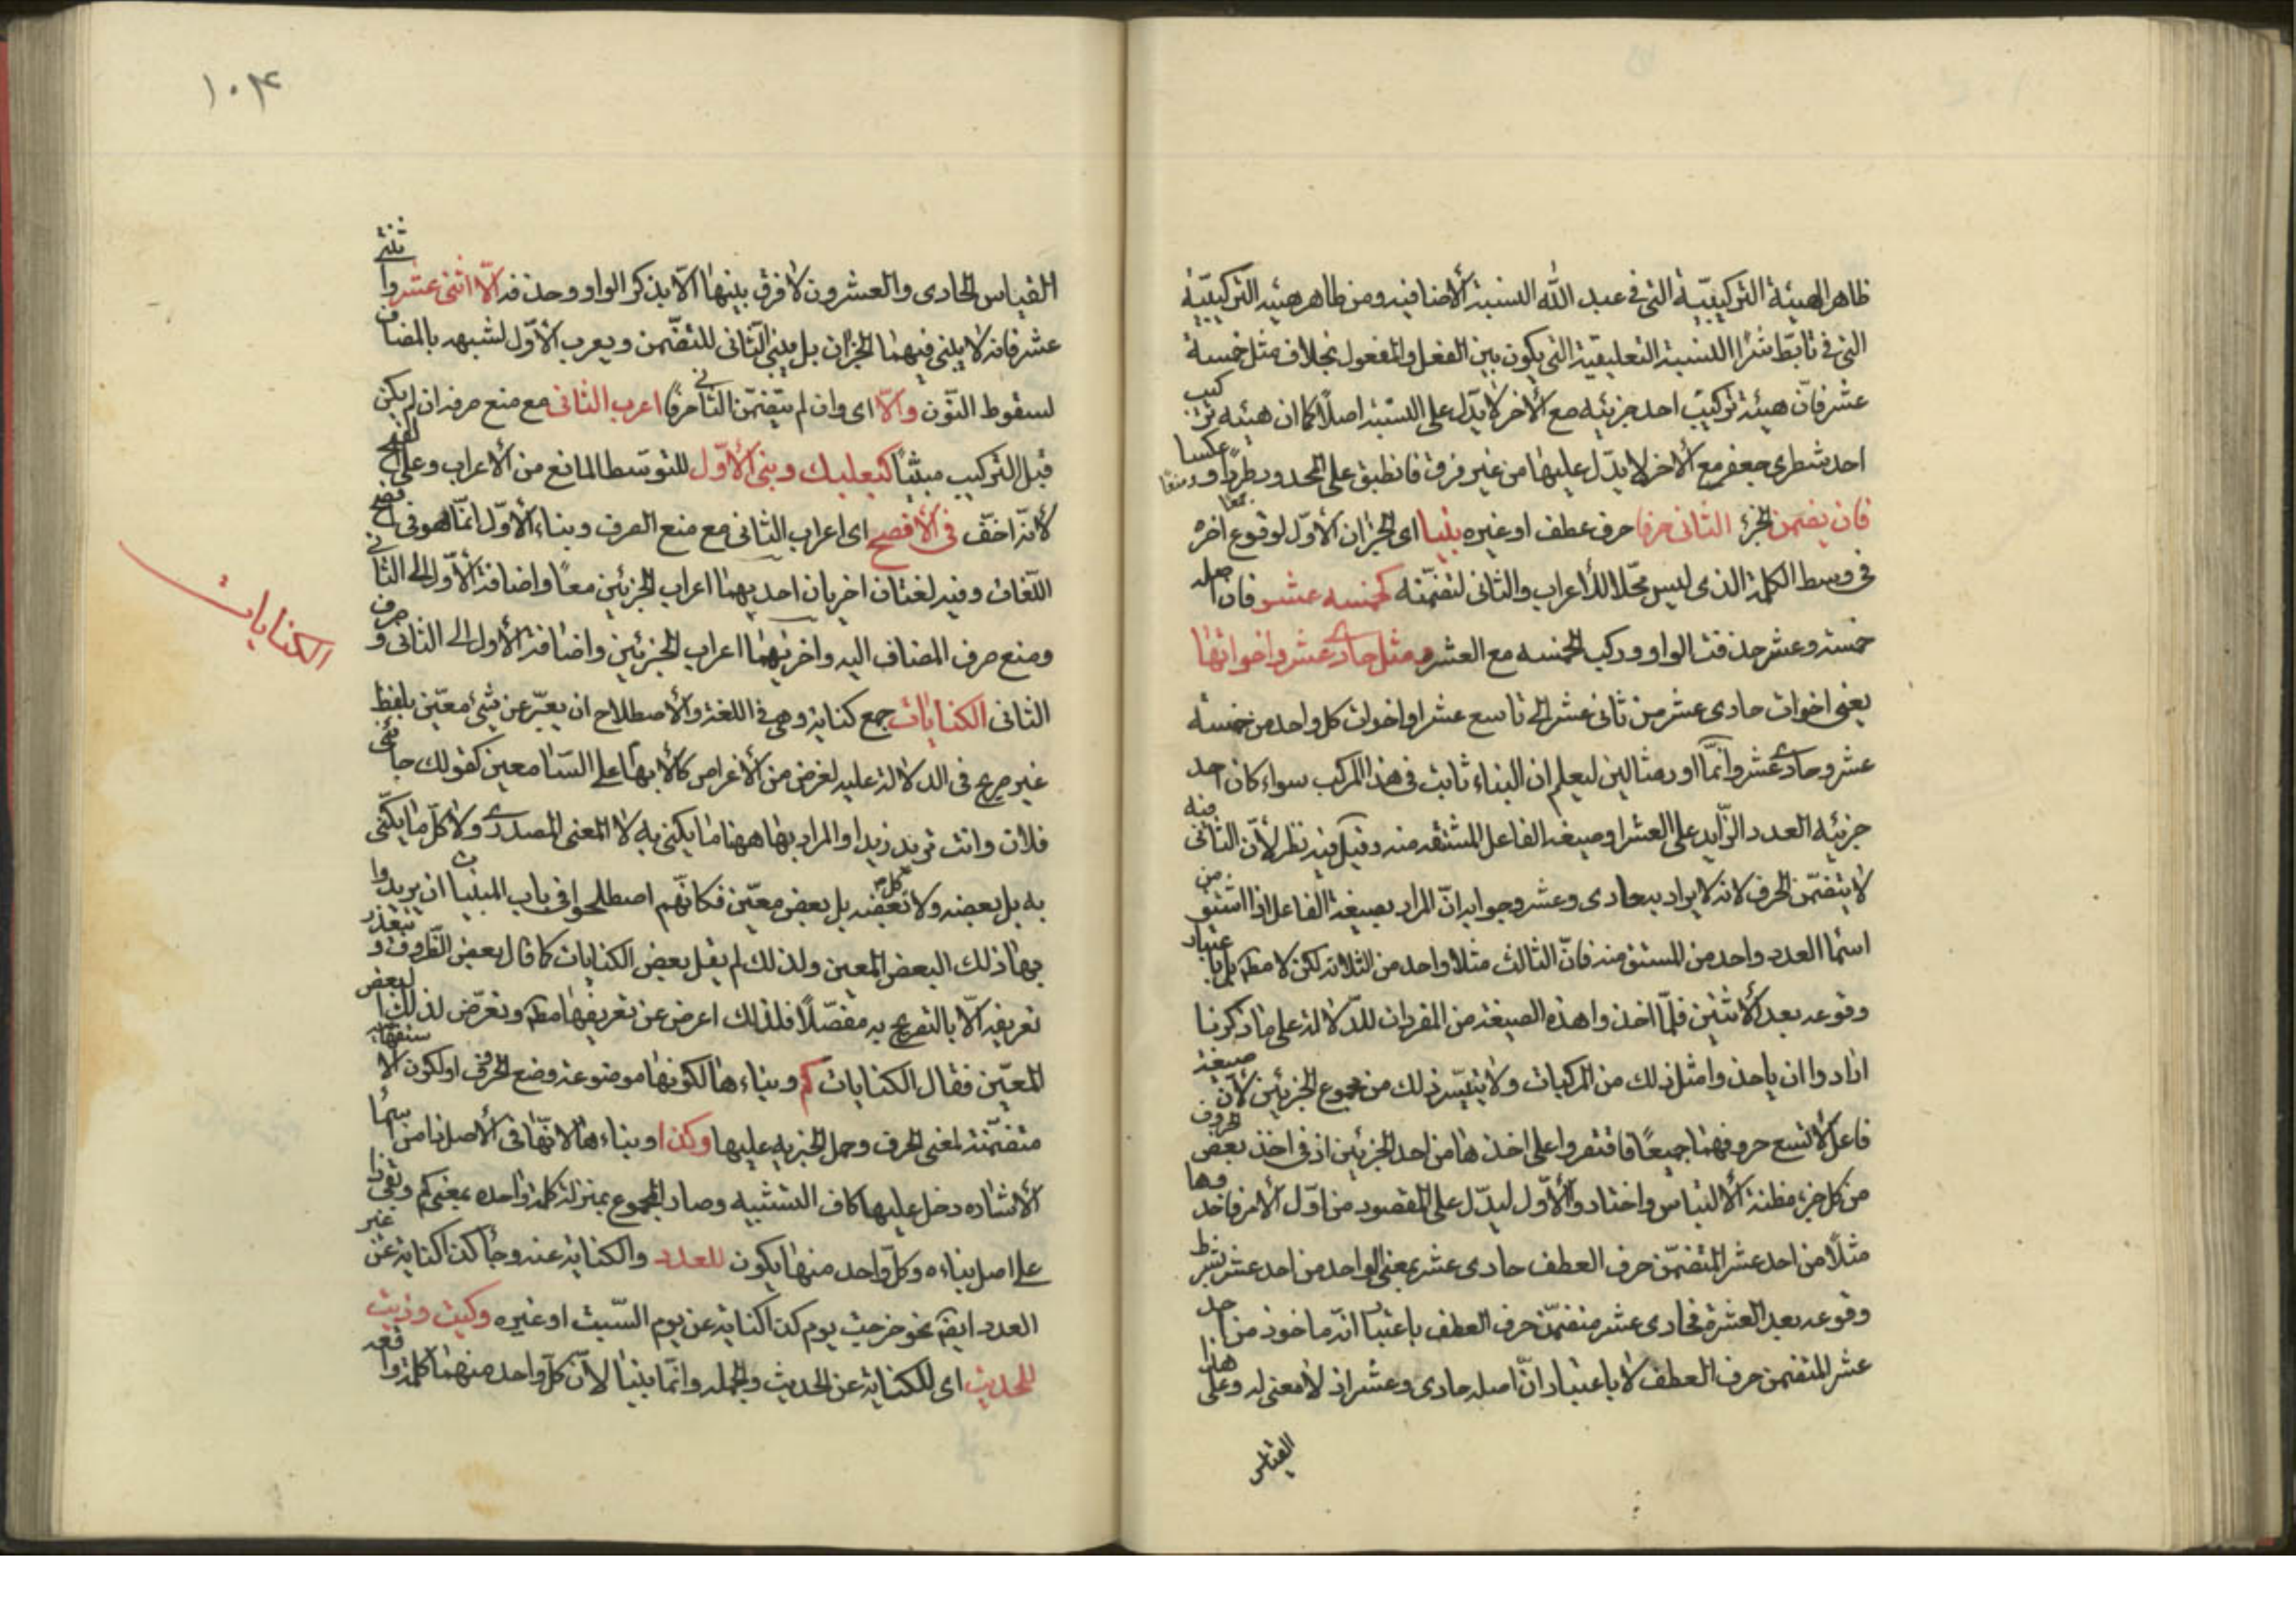 ظاهر الهيئة التركيبيّة التى فى عبد الله النسبة الأضافيه ومن ظاهر هيئه التركيبيّة
التى فى تابّط شرّا النسبة التعليقية التى يكون بين الفعل والمفعول بخلاف مثل خمسة
عشر فانّ هيئة تركيب احد جزئيه مع الأخر لا يدّل على النسبة اصلًا كما ان هيئه تركيب
احد شطرى جعفر مع الأخر لا يدّل عليها من غير فرق فانطبق على المحدود طردًا وعكسا
فان تضمن الجزء الثانى حرفا حرف عطف او غيره بنيا اى الجزان الأوّل لوقوع اخره
فى وسط الكلمة الذى ليس محّلا للأعراب والثانى لتضمّنه كخمسه عشر فان اصله
خمسة وعشر حذفت الواو وركب الخمسه مع العشر ومثل حادى عشر واخواتها
يعنى اخوات حادى عشر من ثانى عشر الى تاسع عشر او اخوات كل واحد من خمسة
عشر وحادى عشر وانّما اورد مثالين ليعلم ان البناء ثابت فى هذا المركب سواء كان احد
جزئيه العدد الزّايد على العشر او صيغه الفاعل المشتقه منه وقيل فيه نظر لأنّ الثانى فيه
لا يتضمّن الحرف لانه لا يراد به حادى وعشر وجوابه انّ المراد بصيغة الفاعل اذا اشتق من
اسما العدد واحد من المشتق منه فانّ الثالث مثلا واحد من الثلاثه لكن لا مطم بل باعتبار
وقوعه بعد الأثنين فلمّا اخذوا هذه الصيغة من المفردات للدّلالة على ما ذكرنا
ارادوا ان ياخذوا مثل ذلك من المركبات ولا يتيسّر ذلك من مجموع الجزئين لأنّ صيغة
فاعل لا تسع حروفهما جميعًا فاقتصروا على اخذها من احد الجزئين اذ فى اخذ بعض حروف
من كل جزء مظنة الألتباس واختاروا الأوّل ليدّل على المقصود من اوّل الأمر فاخذوها
مثلًا من احد عشر المتضمّن حرف العطف حادى عشر بمعنى الواحد من احد عشر بشرط
وقوعه بعد العشرة فحادى عشر متضمّن حرف العطف باعتبار انّه ماخوذ من احد
عشر المتضمن حرف العطف لا باعتبار انّ اصله حادى وعشر اذ لا معنى له وعلى هذا
القياس
١٠٤
القياس الحادى والعشرون لا فرق بينهما الّا بذكر الواو وحذفه الّا اثنى عشر واثنتى
عشر فانه لا يبنى فيهما الجزان بل يبنى الثانى للتضّمن ويعرب الأوّل لشبهه بالمضاف
لسقوط النوّن والّا اى وان لم يتضمّن الثانى حرفًا اعرب الثانى مع منع صرفه ان لم يكن
قبل التركيب مبنّيًا كبعلبك وبنى الأوّل للتوسّط المانع من الأعراب وعلى الفتح
لأنّه اخفّ فى الأفصح اى اعراب الثانى مع منع الصرف وبناء الأوّل انمّا هو فى افصح
اللّغات وفيه لغتان اخريان احديهما اعراب الجزئين معًا واضافة الأوّل الى الثانى
ومنع صرف المضاف اليه واخريهما اعراب الجزئين واضافة الأول الى الثانى وصرف
الثانى الكنايات جمع كناية وهى فى اللغة والأصطلاح ان يعبّر عن شئ معيّن بلفظ
الكنايات
غير صريح فى الدلالة عليه لغرض من الأغراض كالأبهام على السّامعين كقولك جائنى
فلان وانت تريد زيدا والمراد بها ههنا ما يكنى به لا المعنى المصدرى ولا كلّ ما يكنّى
به بل بعضه ولا كل بعضه بل بعض معيّن فكانّهم اصطلحوا فى باب المبنيات ان يريدوا
بها ذلك البعض المعين ولذلك لم يقل بعض الكنايات كما قال بعض الظّروف ويتعذر
تعريفه الّا بالتصريح به مفصّلًا فلذلك اعرض عن تعريفها مطم وتعرّض لذلك البعض
المعيّن فقال الكنايات كم وبناءها لكونها موضوعة وضع الحرف او لكون الاستفهاميه
متضمّنة لمعنى الحرف وحمل الخبريه عليها وكذا وبناءها لانّها فى الأصل ذا من اسما
الأشاره دخل عليها كاف التشبيه وصار المجموع بمنزلة كلمة واحده بمعنى كم وبقى ذا
على اصل بناءه وكلّ واحد منها يكون للعدد والكناية عنه وجاء كذا كناية عن غير
العدد ايضم نحو خرجت يوم كذا كناية عن يوم السّبت او غيره وكيت وذيت
للحديث اى للكناية عن الحديث والجمله وانّما بنيا لأنّ كلّ واحد منهما كلمة واقعه